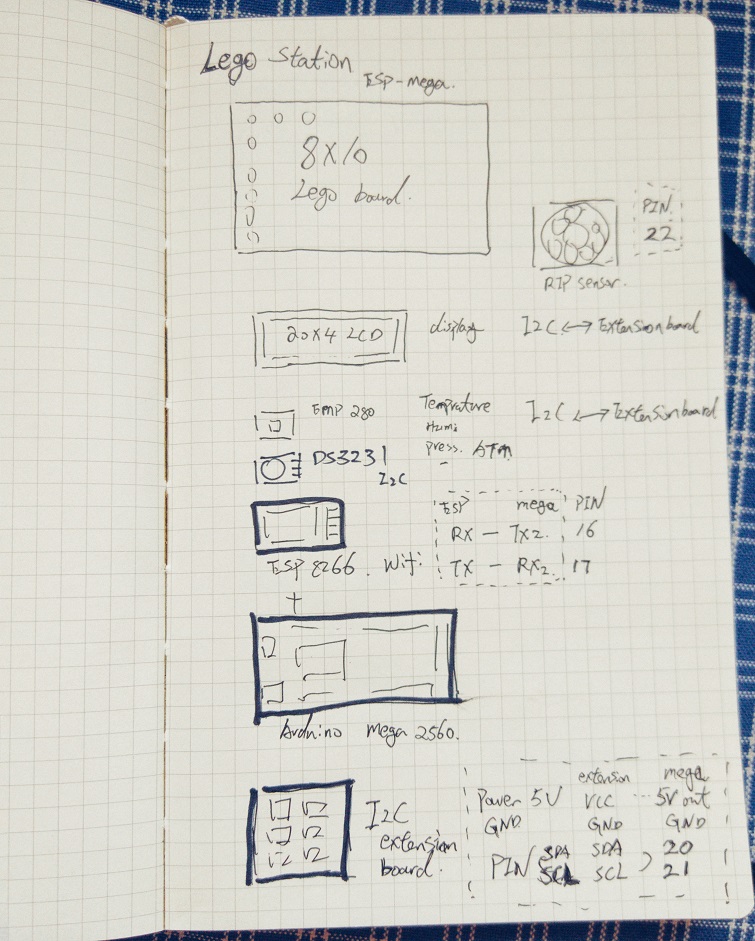 Lego Station
ESP-mega.
8X10
Lego board.
PIN
22
RIP sensor.
20X4 LCD
display
I2C <-> Extensionboard
BMP 280
Temprature
Humi
press. ATM
I2C <-> Extensionboard
DS3231
I2C
ESP mega PIN
RX — TX2. 16
TX — RX2 17
ESP 8266. Wifi
+
Arduino mega 2560.
I2C
extension
board.
extension mega
Power 5V VCC ... 5V out
GND GND GND
PIN SDA SDA 20
SCL SCL 21